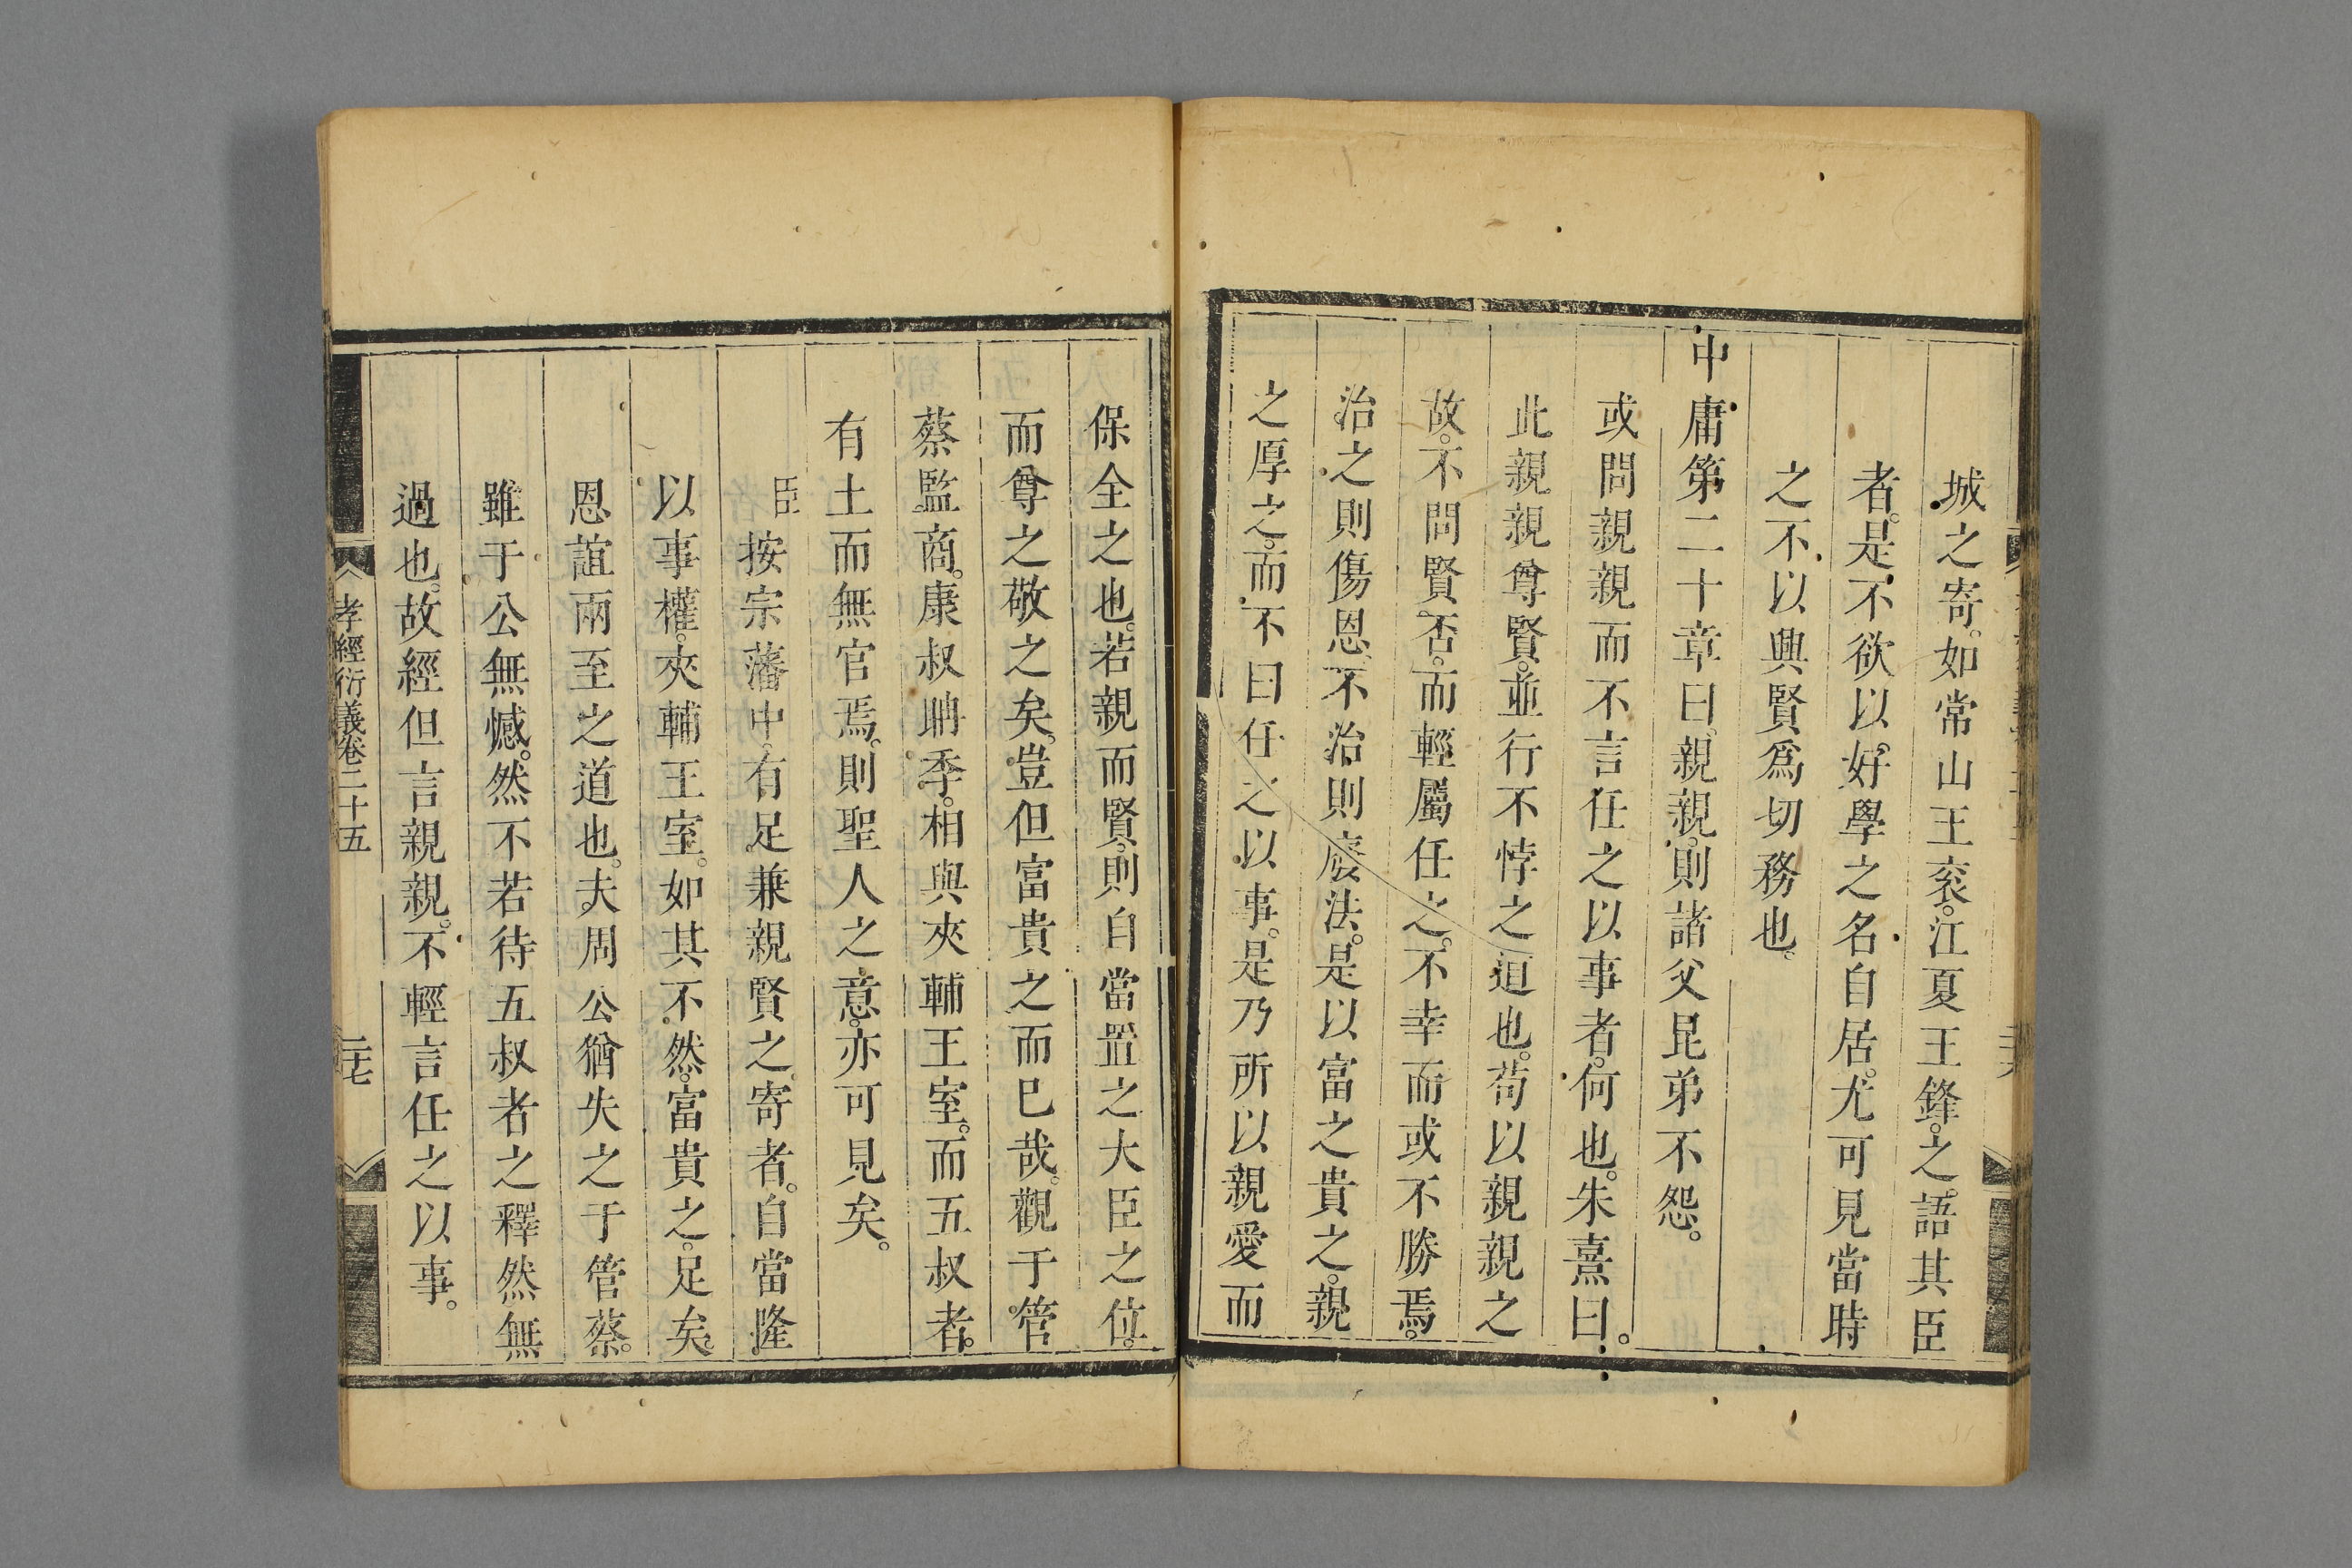 城之寄。如常山王袞。江夏王鋒。之語其臣
者。是不欲以好學之名自居。尤可見當時
之不以興賢爲切務也。
中庸第二十章曰。親親。則諸父昆弟不怨。
或問親親而不言任之以事者。何也。朱熹曰。
此親親尊賢。並行不悖之道也。苟以親親之
故。不問賢否。而輕屬任之。不幸而或不勝焉。
治之則傷恩。不治則廢法。是以富之貴之。親
之厚之。而不曰任之以事。是乃所以親愛而
保全之也。若親而賢。則自當置之大臣之位。
而尊之敬之矣。豈但富貴之而已哉。觀于管
蔡監商。康叔聃季。相與夾輔王室。而五叔者。
有土而無官焉。則聖人之意。亦可見矣。
臣按宗藩中。有足兼親賢之寄者。自當隆。
以事權。夾輔王室。如其不然。富貴之。足矣。
恩誼兩至之道也。夫周公猶失之于管蔡。
雖于公無憾。然不若待五叔者之釋然無
過也。故經但言親親。不輕言任之以事。
孝經衍義卷二十五
二十七